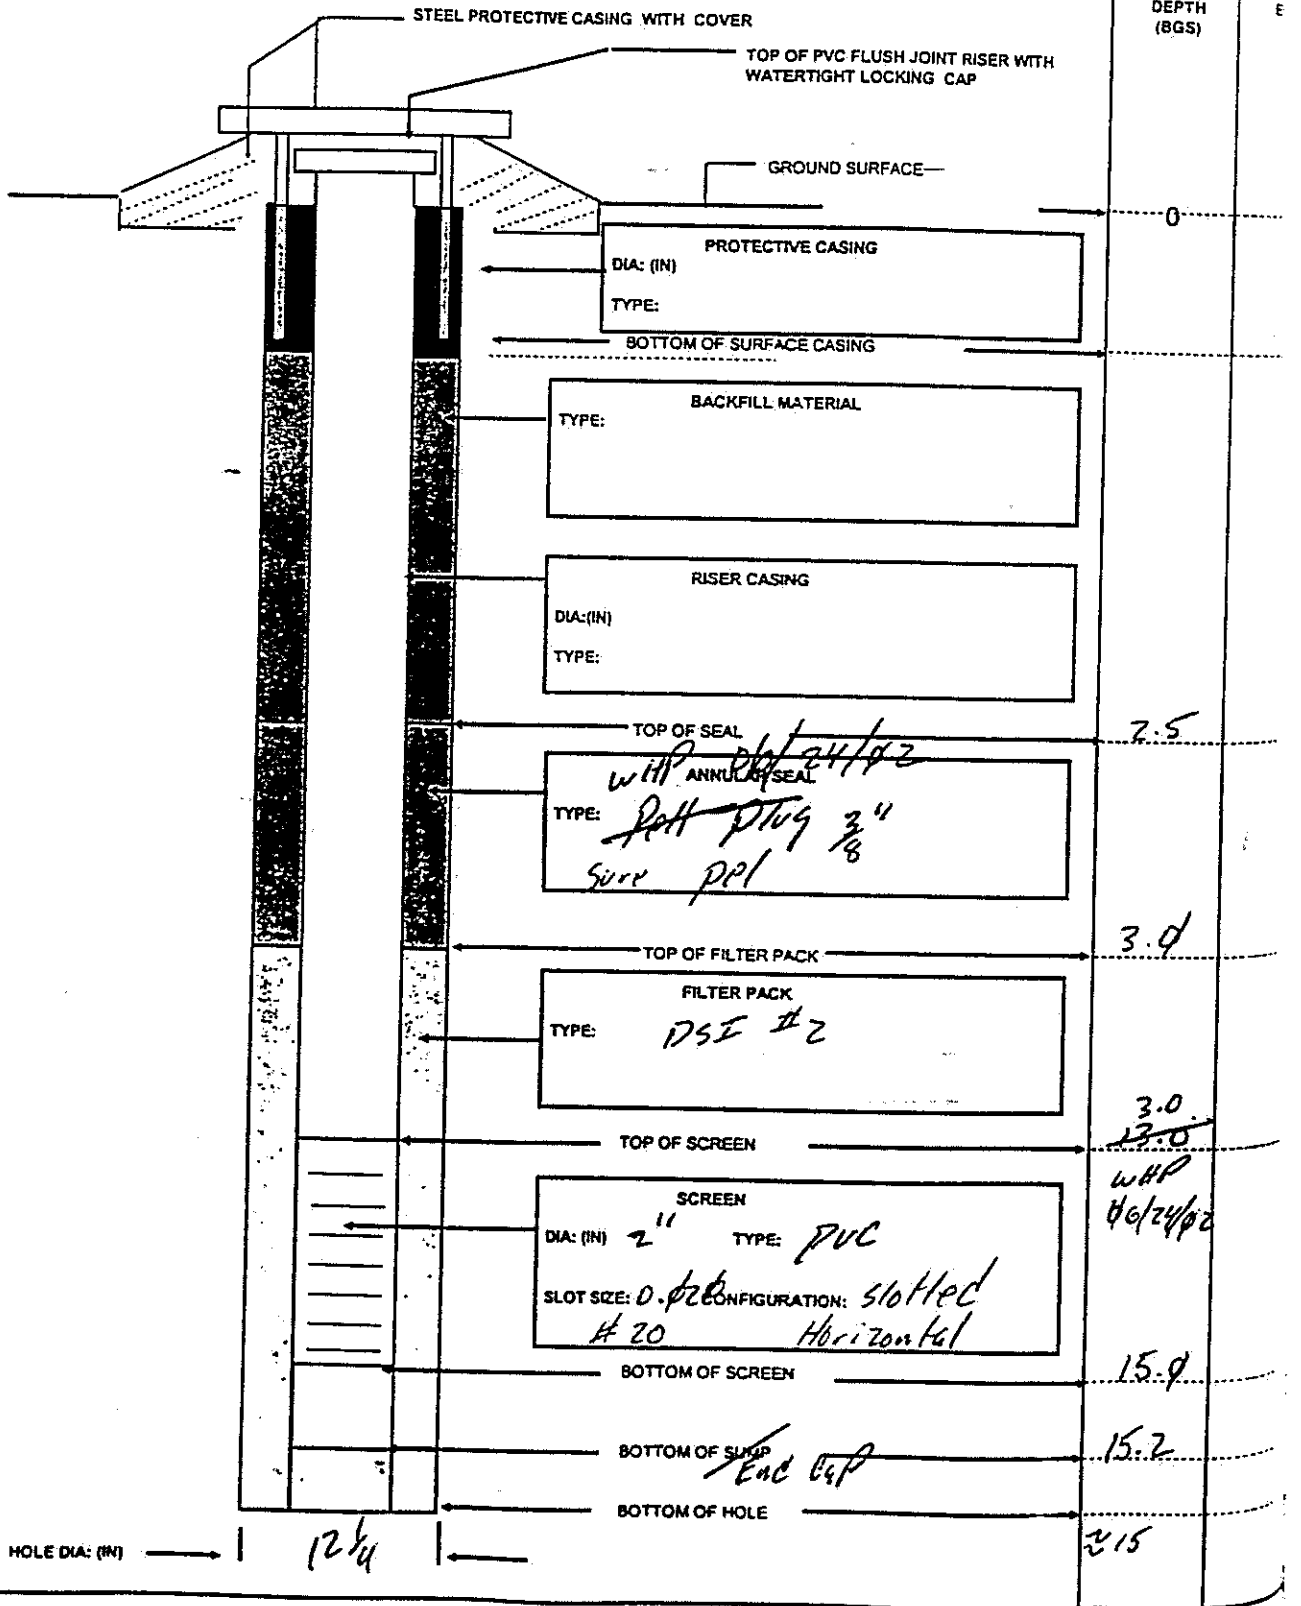 STEEL PROTECTIVE CASING WITH COVER
DEPTH
(BGS)
E
TOP OF PVC FLUSH JOINT RISER WITH
WATERTIGHT LOCKING CAP
GROUND SURFACE
0
PROTECTIVE CASING
DIA: (IN)
TYPE:
BOTTOM OF SURFACE CASING
BACKFILL MATERIAL
TYPE:
RISER CASING
DIA:(IN)
TYPE:
TOP OF SEAL
2.5
WHP 06/24/02
ANNULAR SEAL
TYPE: Pell Plug 3/8"
Sure pel
TOP OF FILTER PACK
3.0
FILTER PACK
TYPE: DSI #2
3.0
TOP OF SCREEN
13.0
WHP
06/24/02
SCREEN
DIA: (IN) 2" TYPE: PVC
SLOT SIZE: 0.020 CONFIGURATION: Slotted
#20 Horizontal
BOTTOM OF SCREEN
15.0
BOTTOM OF SUMP
15.2
/End Cap
BOTTOM OF HOLE
≈15
HOLE DIA: (IN) 12 1/4